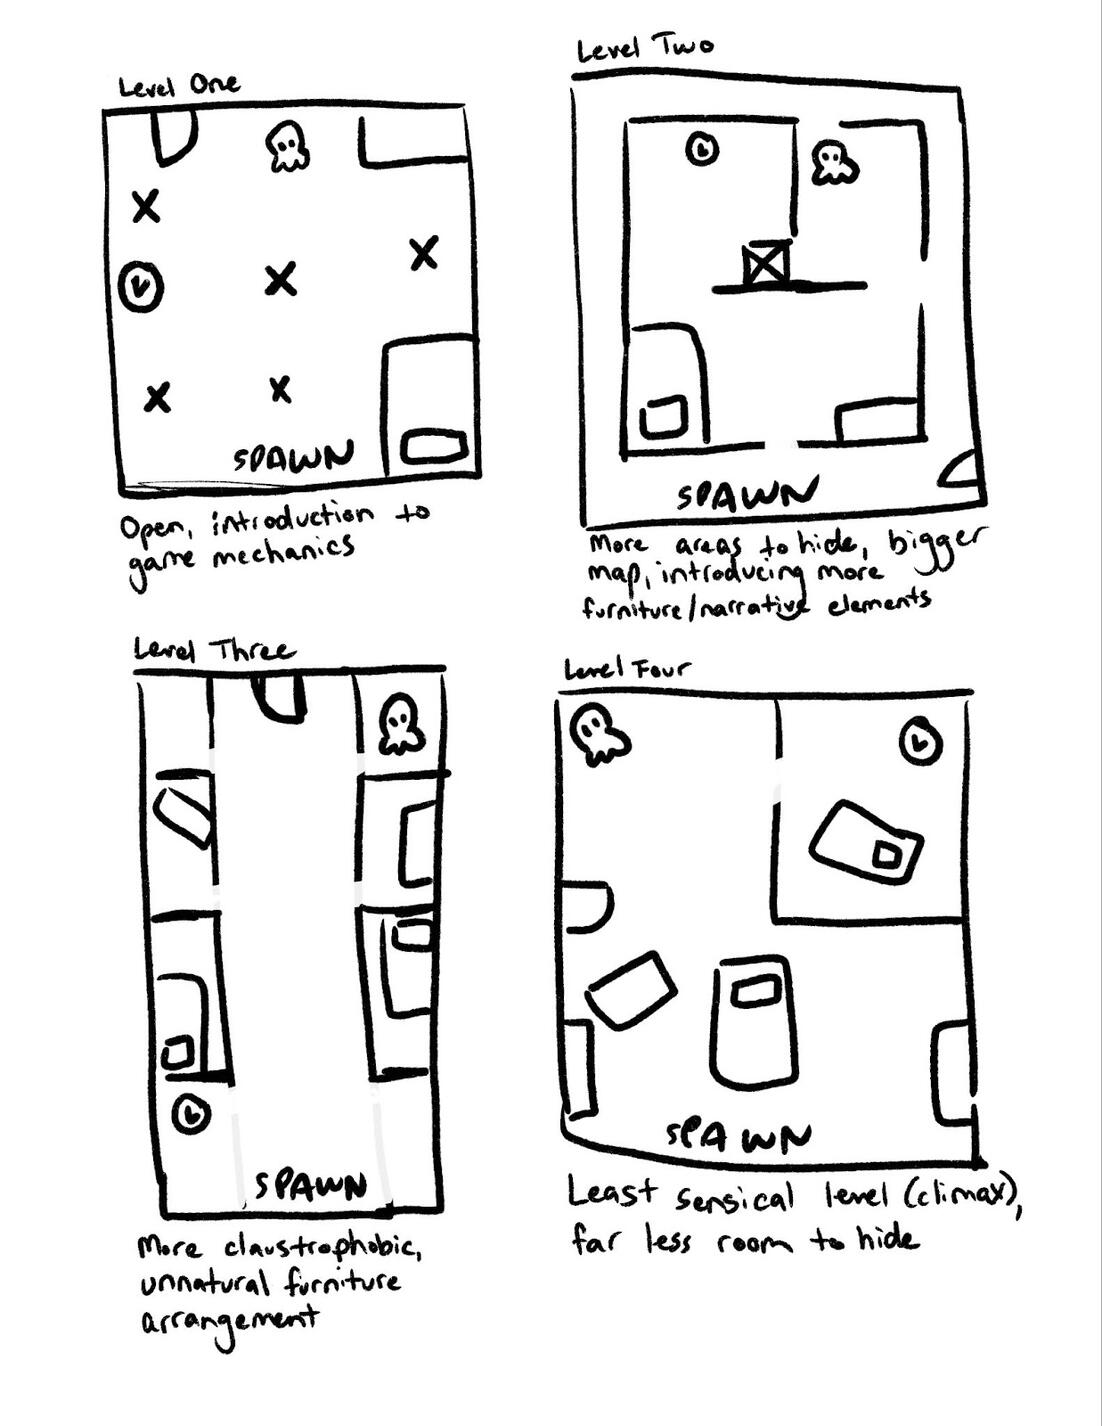 Level One
SPAWN
Open, introduction to
game mechanics
Level Two
SPAWN
More areas to hide, bigger
map, introducing more
furniture/narrative elements
Level Three
SPAWN
More claustrophobic,
unnatural furniture
arrangement
Level Four
SPAWN
Least sensical level (climax),
far less room to hide